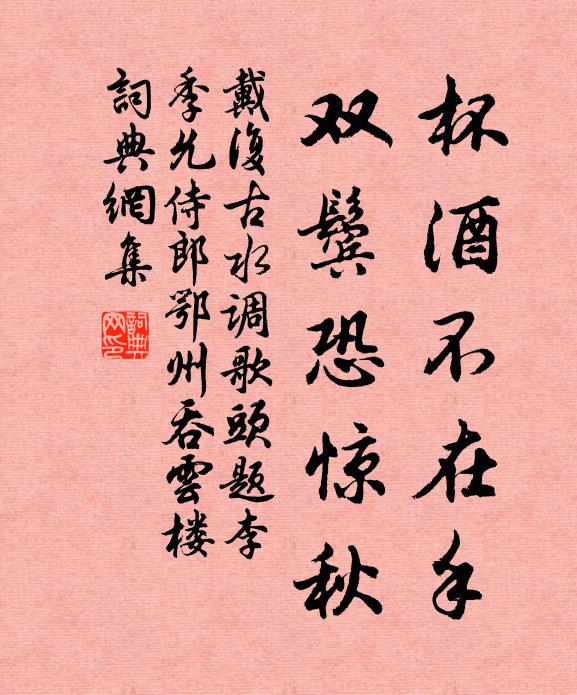 杯酒不在手
双鬓恐惊秋
戴復古水调歌頭題李
季允侍郎鄂州吞雲楼
詞典網集
詞典网印